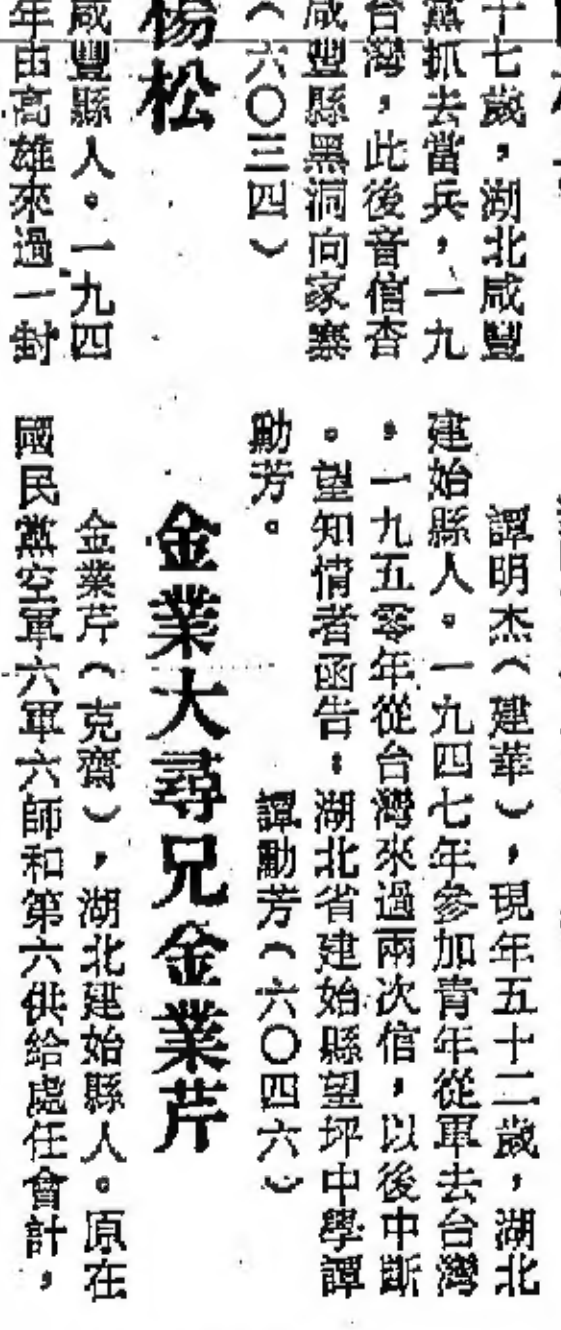 十七歲，湖北咸豐
黨抓去當兵，一九
台灣，此後音信杳
咸豐縣黑洞向家寨
（六〇三四）
楊松
咸豐縣人。一九四
年由高雄來過一封
譚明杰（建華），現年五十二歲，湖北
建始縣人。一九四七年參加青年從軍去台灣
，一九五零年從台灣來過兩次信，以後中斷
。望知情者函告：湖北省建始縣望坪中學譚
勳芳。
譚勳芳（六〇四六）
金業大尋兄金業芹
金業芹（克齋），湖北建始縣人。原在
國民黨空軍六軍六師和第六供給處任會計，